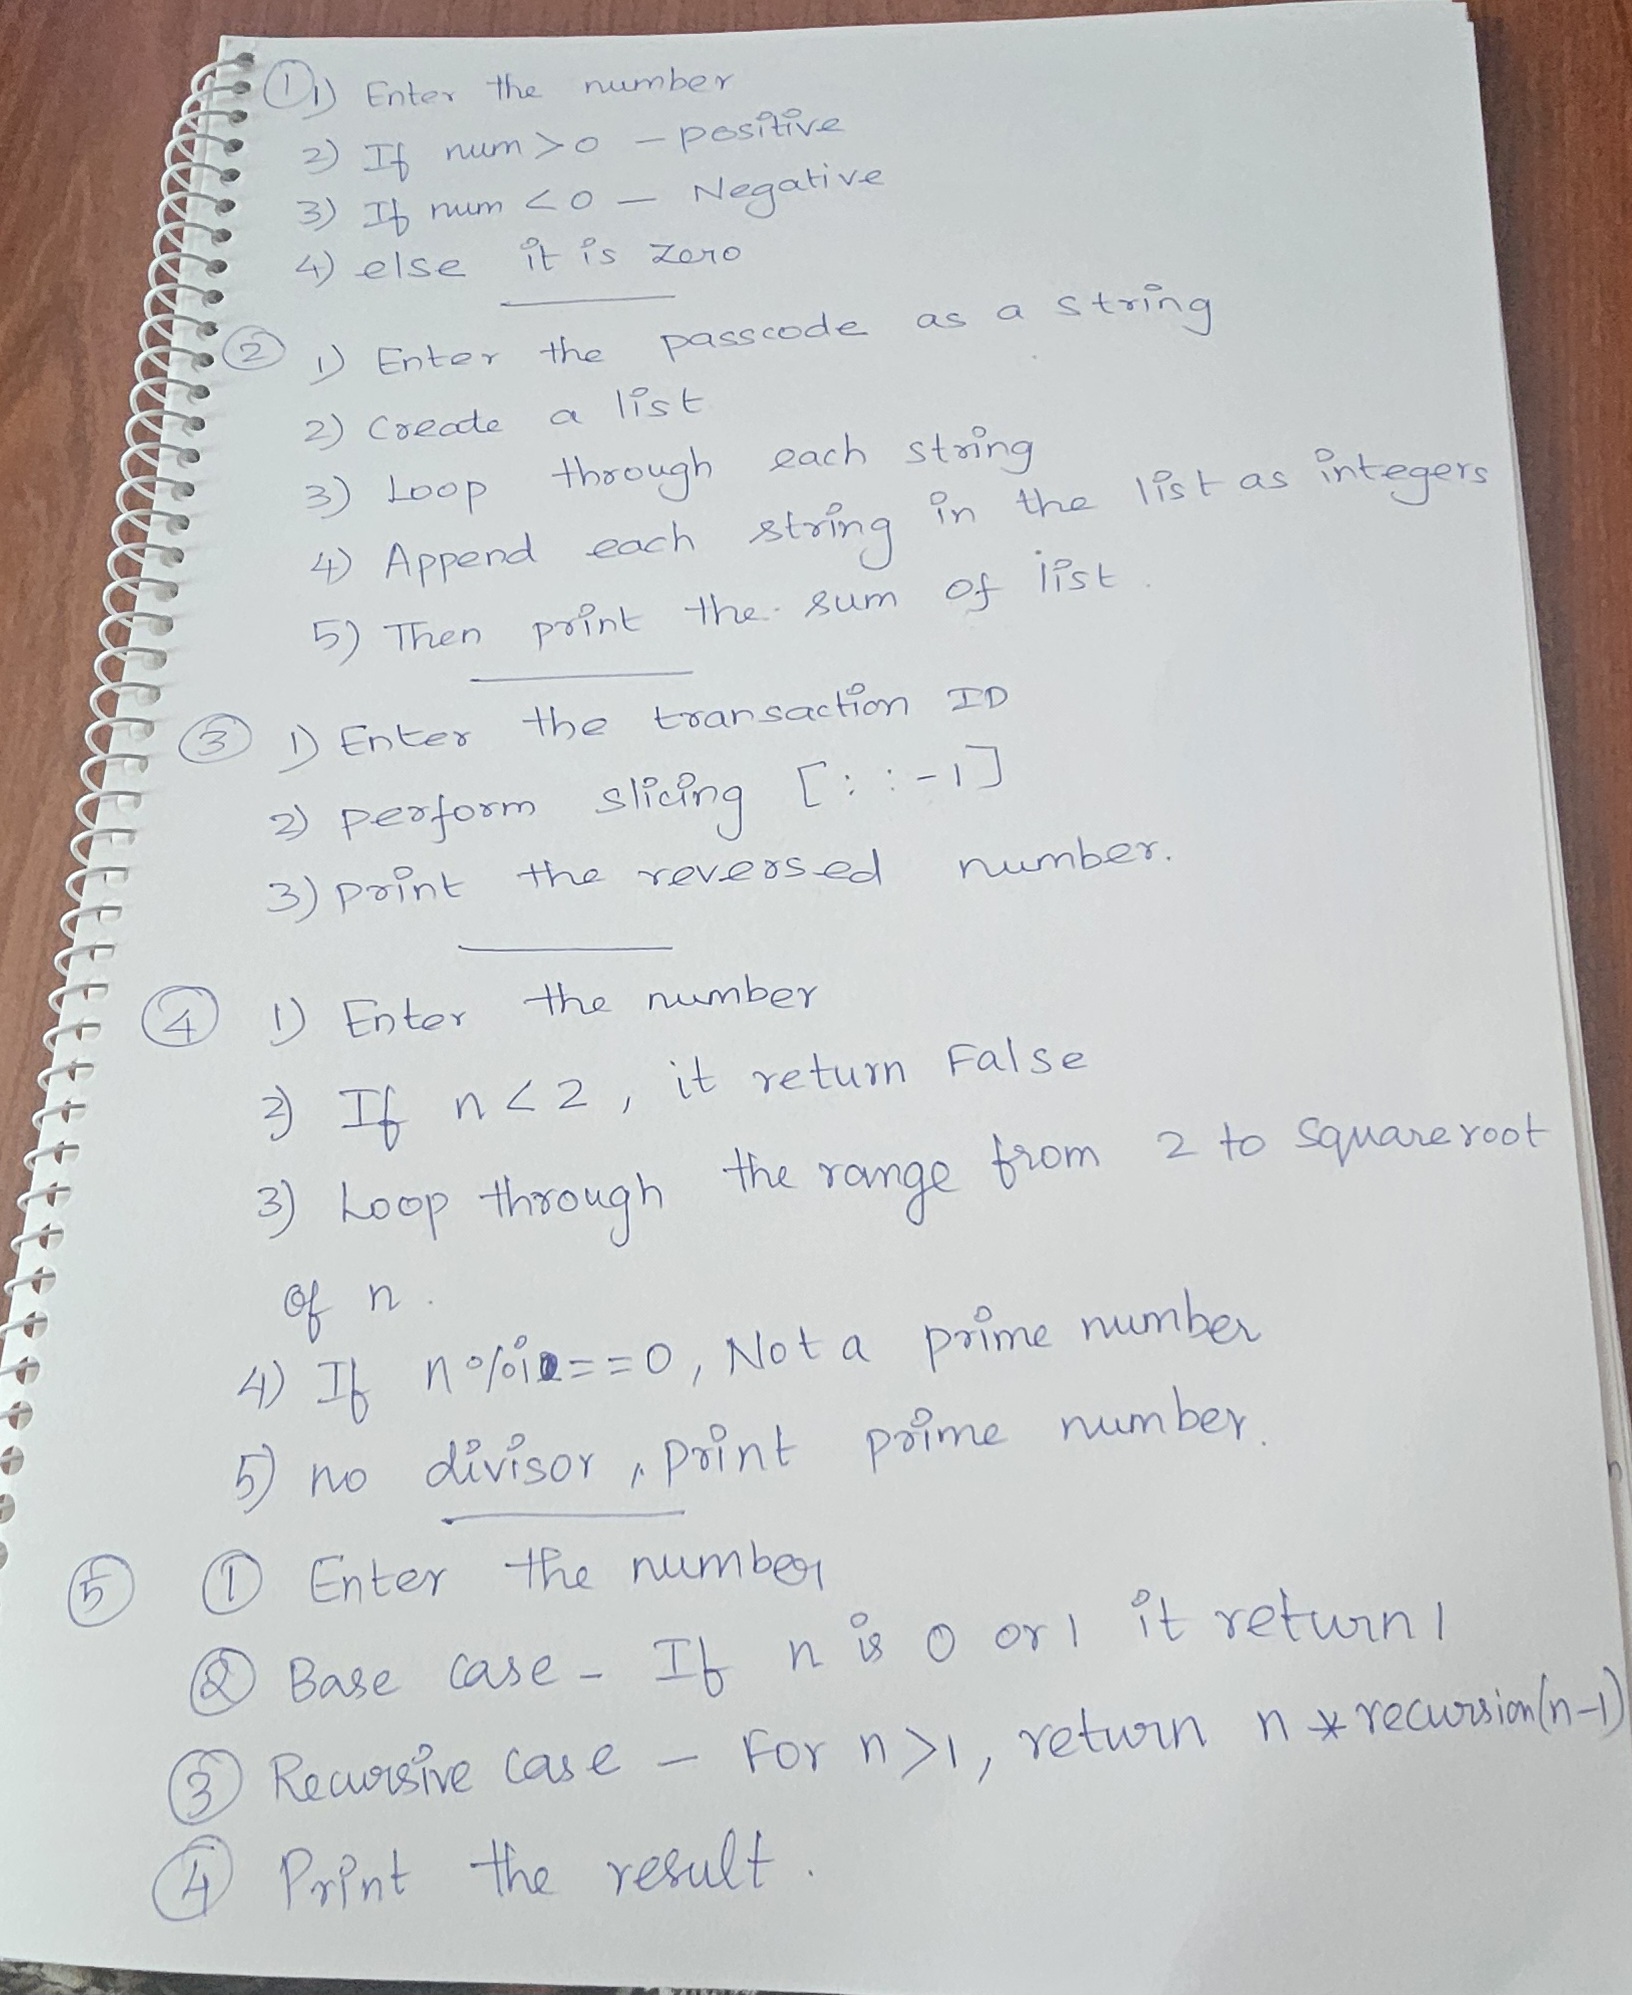 ① 1) Enter the number
2) If num > 0 - positive
3) If num < 0 - Negative
4) else it is zero
② 1) Enter the passcode as a string
2) Create a list
3) Loop through each string
4) Append each string in the list as integers
5) Then print the sum of list.
③ 1) Enter the transaction ID
2) perform slicing [: : -1]
3) print the reversed number.
④ 1) Enter the number
2) If n < 2, it return False
3) Loop through the range from 2 to square root
of n.
4) If n%i==0, Not a prime number
5) no divisor, print prime number.
⑤ ① Enter the number
② Base case - If n is 0 or 1 it return 1
③ Recursive case - For n>1, return n * recursion(n-1)
④ Print the result.